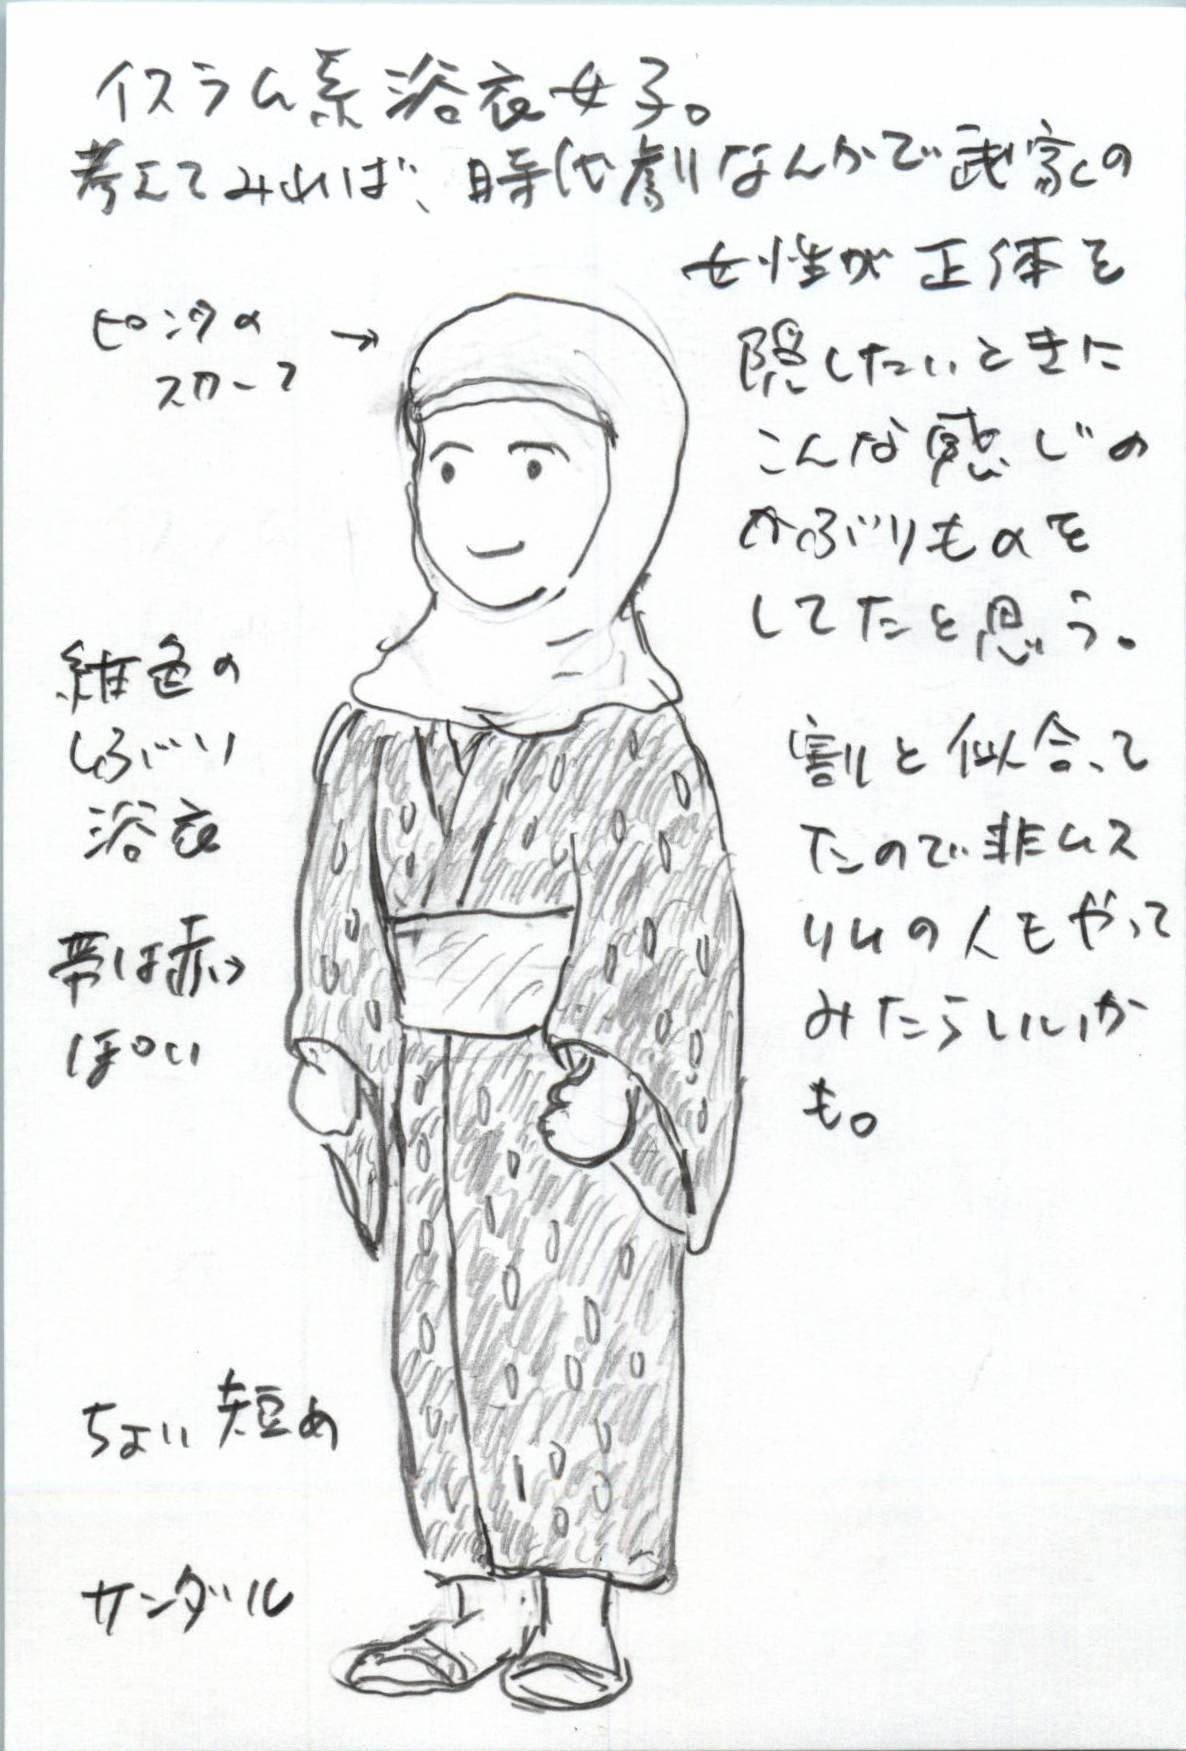 イスラム系浴衣女子。
考えてみれば、時代劇なんかで武家の
女性が正体を
隠したいときに
こんな感じの
かぶりものを
してたと思う。
割と似合って
たので非ムス
リムの人もやって
みたらいいか
も。
ピンクの
スカーフ
紺色の
しぶり
浴衣
帯は赤っ
ぽい
ちょい短め
サンダル